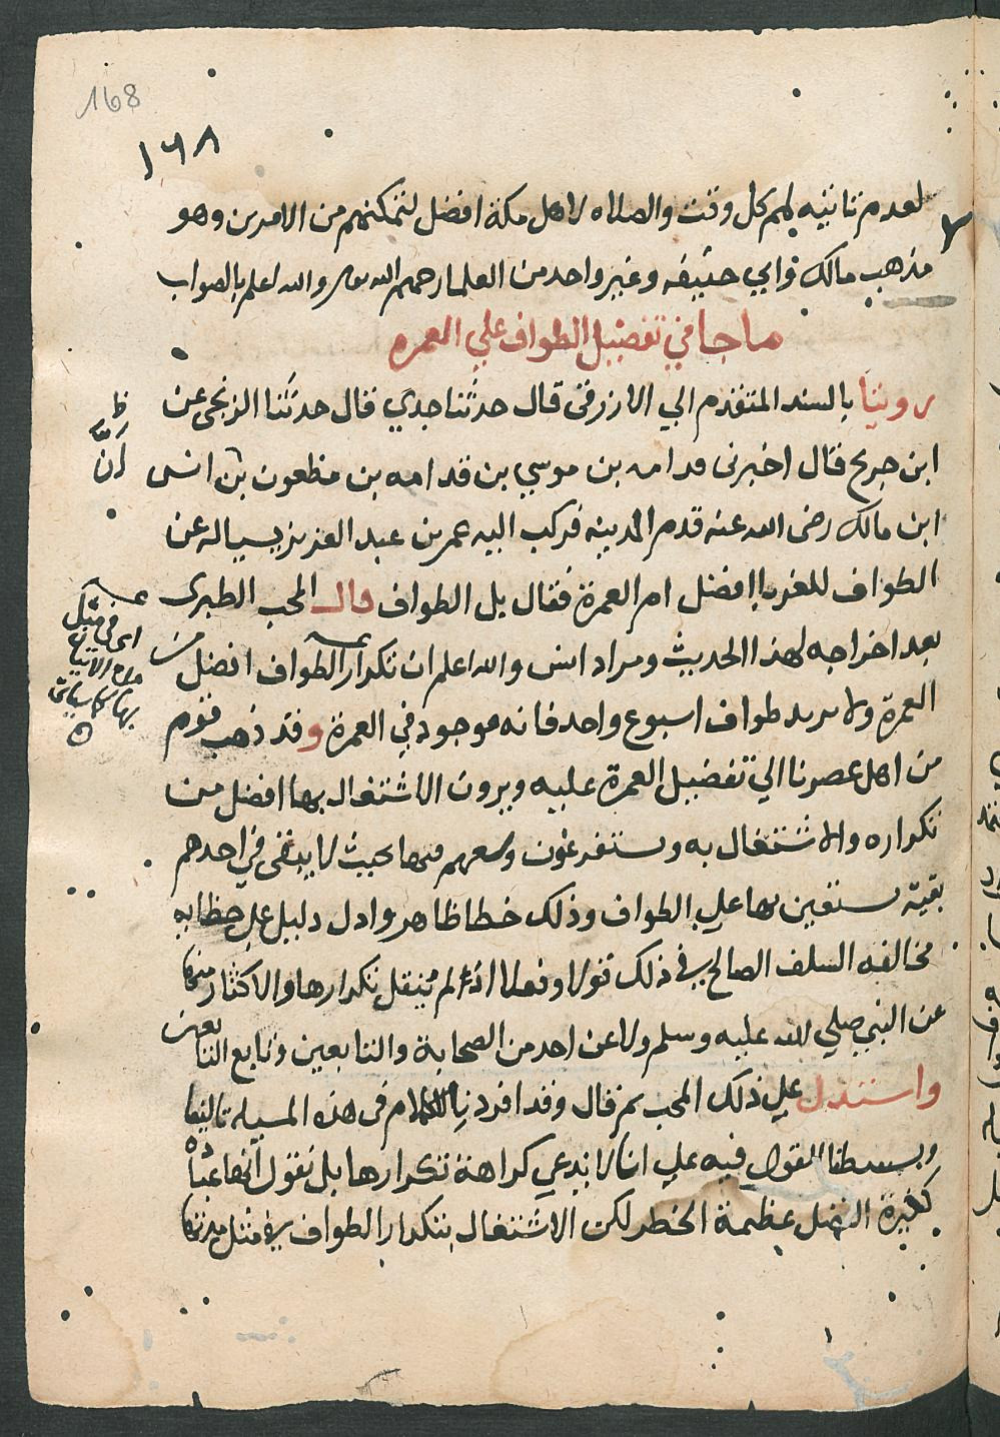 168
١٦٨
لعدم تاتيه لهم كل وقت والصلاه لاهل مكة افضل لتمكنهم من الامرين وهو
مذهب مالك وابي حنيفه وغير واحد من العلما رحمهم الله والله اعلم بالصواب
ما جا في تفضيل الطواف علي العمره
روينا بالسند المتقدم الي الازرقي قال حدثنا جدي قال حدثنا الزنجي عن
ابن جريج قال اخبرني قدامه بن موسي بن قدامه بن مظعون بن انس
ظ
ان
ابن مالك رضى الله عنه قدم المدينه فركب اليه عمر بن عبد العزيز يساله عن
الطواف للغربا افضل ام العمرة فقال بل الطواف قال المحب الطبرى
بعد اخراجه لهذا الحديث ومراد انس والله اعلم ان تكرار الطواف افضل من
العمرة ولا يريد طواف اسبوع واحد فانه موجود في العمرة وقد ذهب قوم
اى في مثل
مدة الاتيان
بها كما سياتى
من اهل عصرنا الي تفضيل العمرة عليه ويرون الاشتغال بها افضل من
تكراره والاشتغال به ويستفرغون وسعهم فيها بحيث لا يبقى في احدهم
بقية يستعين بها علي الطواف وذلك خطا ظاهر وادل دليل علي خطايه
مخالفه السلف الصالح في ذلك قولا وفعلا اذ لم ينقل تكرارها والاكثار منها
عن النبي صلي الله عليه وسلم ولا عن احد من الصحابة والتابعين وتابع التابعين
واستدل علي ذلك المحب ثم قال وقد افردنا الكلام فى هذه المسيله تاليفا
وبسطنا القول فيه علي انا لا ندعي كراهة تكرارها بل نقول انها عبادة
كثيرة الفضل عظيمة الخطر لكن الاشتغال بتكرار الطواف في مثل مدتها